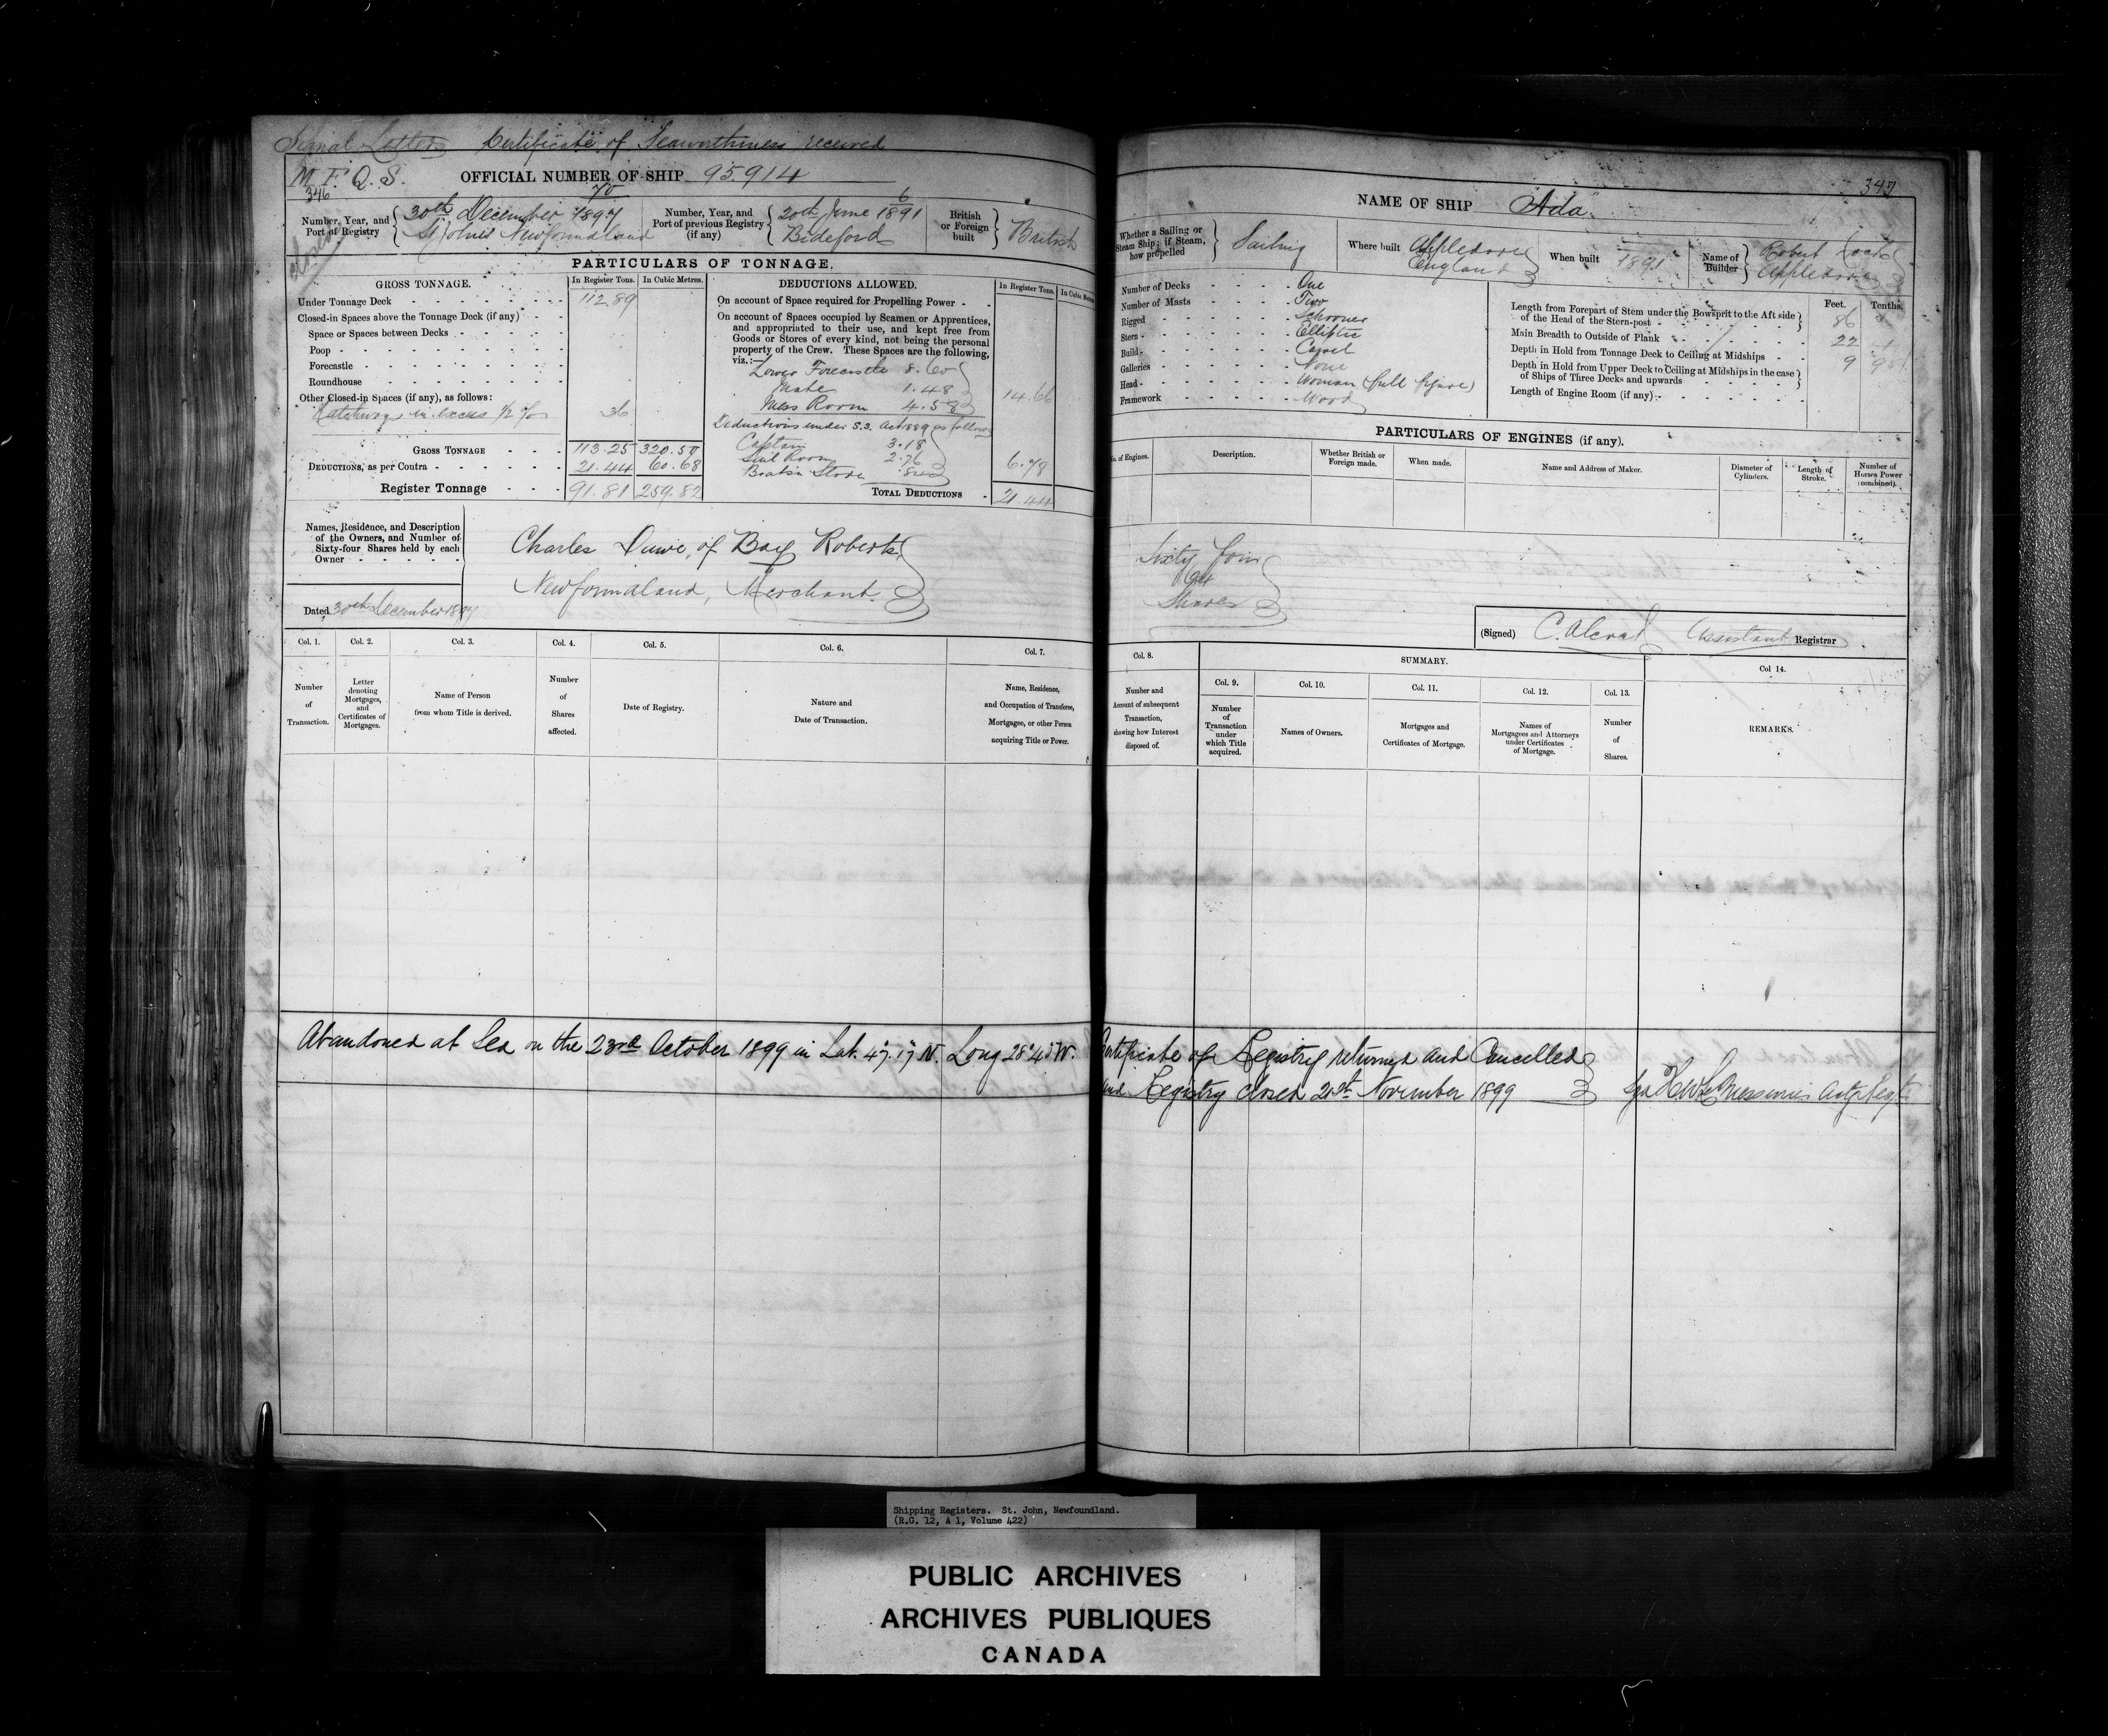 Signal Letters Certificate of Seaworthiness received
M. F. Q. S. OFFICIAL NUMBER OF SHIP 95.914
346
Number, Year, and Port of Registry 70 30th December 1897 St John's Newfoundland
Number, Year, and Port of previous Registry (if any) 6 20th June 1891 Bideford
British or Foreign built British
closed
PARTICULARS OF TONNAGE.
GROSS TONNAGE. In Register Tons. In Cubic Metres.
Under Tonnage Deck 112.89
Closed-in Spaces above the Tonnage Deck (if any)
Space or Spaces between Decks
Poop
Forecastle
Roundhouse
Other Closed-in Spaces (if any), as follows:
Hatchways in excess 1/2 % 36
GROSS TONNAGE 113.25 320.50
DEDUCTIONS, as per Contra 21.44 60.68
Register Tonnage 91.81 259.82
DEDUCTIONS ALLOWED. In Register Tons. In Cubic Metres
On account of Space required for Propelling Power
On account of Spaces occupied by Seamen or Apprentices,
and appropriated to their use, and kept free from
Goods or Stores of every kind, not being the personal
property of the Crew. These Spaces are the following,
viz.:—
Lower Forecastle 8.60
Mate 1.48
Mess Room 4.58
14.66
Deductions under S.S. Act 1889 as follows
Captain 3.18
Sail Room 2.76
Boatsn Store
6.78
TOTAL DEDUCTIONS 21.44
Names, Residence, and Description
of the Owners, and Number of
Sixty-four Shares held by each
Owner
Charles Dawe, of Bay Roberts
Newfoundland, Merchant.
Dated 30th December 1897
Col. 1. Col. 2. Col. 3. Col. 4. Col. 5. Col. 6. Col. 7.
Number of Transaction.
Letter denoting Mortgages, and Certificates of Mortgages.
Name of Person from whom Title is derived.
Number of Shares affected.
Date of Registry.
Nature and Date of Transaction.
Name, Residence, and Occupation of Transferee, Mortgagee, or other Person acquiring Title or Power.
Abandoned at Sea on the 23rd October 1899 in Lat. 47.17 N. Long 28°45 W.
347
NAME OF SHIP Ada.
Whether a Sailing or Steam Ship; if Steam, how propelled Sailing
Where built Appledore England
When built 1891
Name of Builder Robert Cock Appledore
Number of Decks One
Number of Masts Two
Rigged Schooner
Stern Elliptic
Build Carvel
Galleries None
Head Woman (full figure)
Framework Wood
Feet. Tenths.
Length from Forepart of Stem under the Bowsprit to the Aft side
of the Head of the Stern-post 86
Main Breadth to Outside of Plank 22 1
Depth in Hold from Tonnage Deck to Ceiling at Midships 9
Depth in Hold from Upper Deck to Ceiling at Midships in the case
of Ships of Three Decks and upwards
Length of Engine Room (if any)
PARTICULARS OF ENGINES (if any).
No. of Engines. Description. Whether British or Foreign made. When made. Name and Address of Maker. Diameter of Cylinders. Length of Stroke. Number of Horses Power (combined).
Sixty four
64
Shares
(Signed) C. Alcock Assistant Registrar
Col. 8. SUMMARY. Col 14.
Col. 9. Col. 10. Col. 11. Col. 12. Col. 13.
Number and Account of subsequent Transaction, showing how Interest disposed of.
Number of Transaction under which Title acquired.
Names of Owners.
Mortgages and Certificates of Mortgage.
Names of Mortgagees and Attorneys under Certificates of Mortgage.
Number of Shares.
REMARKS.
Certificate of Registry returned and Cancelled
and Registry closed 21st November 1899 Sgd H W LeMessurier
Shipping Registers. St. John, Newfoundland.
(R.G. 12, A 1, Volume 422)
PUBLIC ARCHIVES
ARCHIVES PUBLIQUES
CANADA